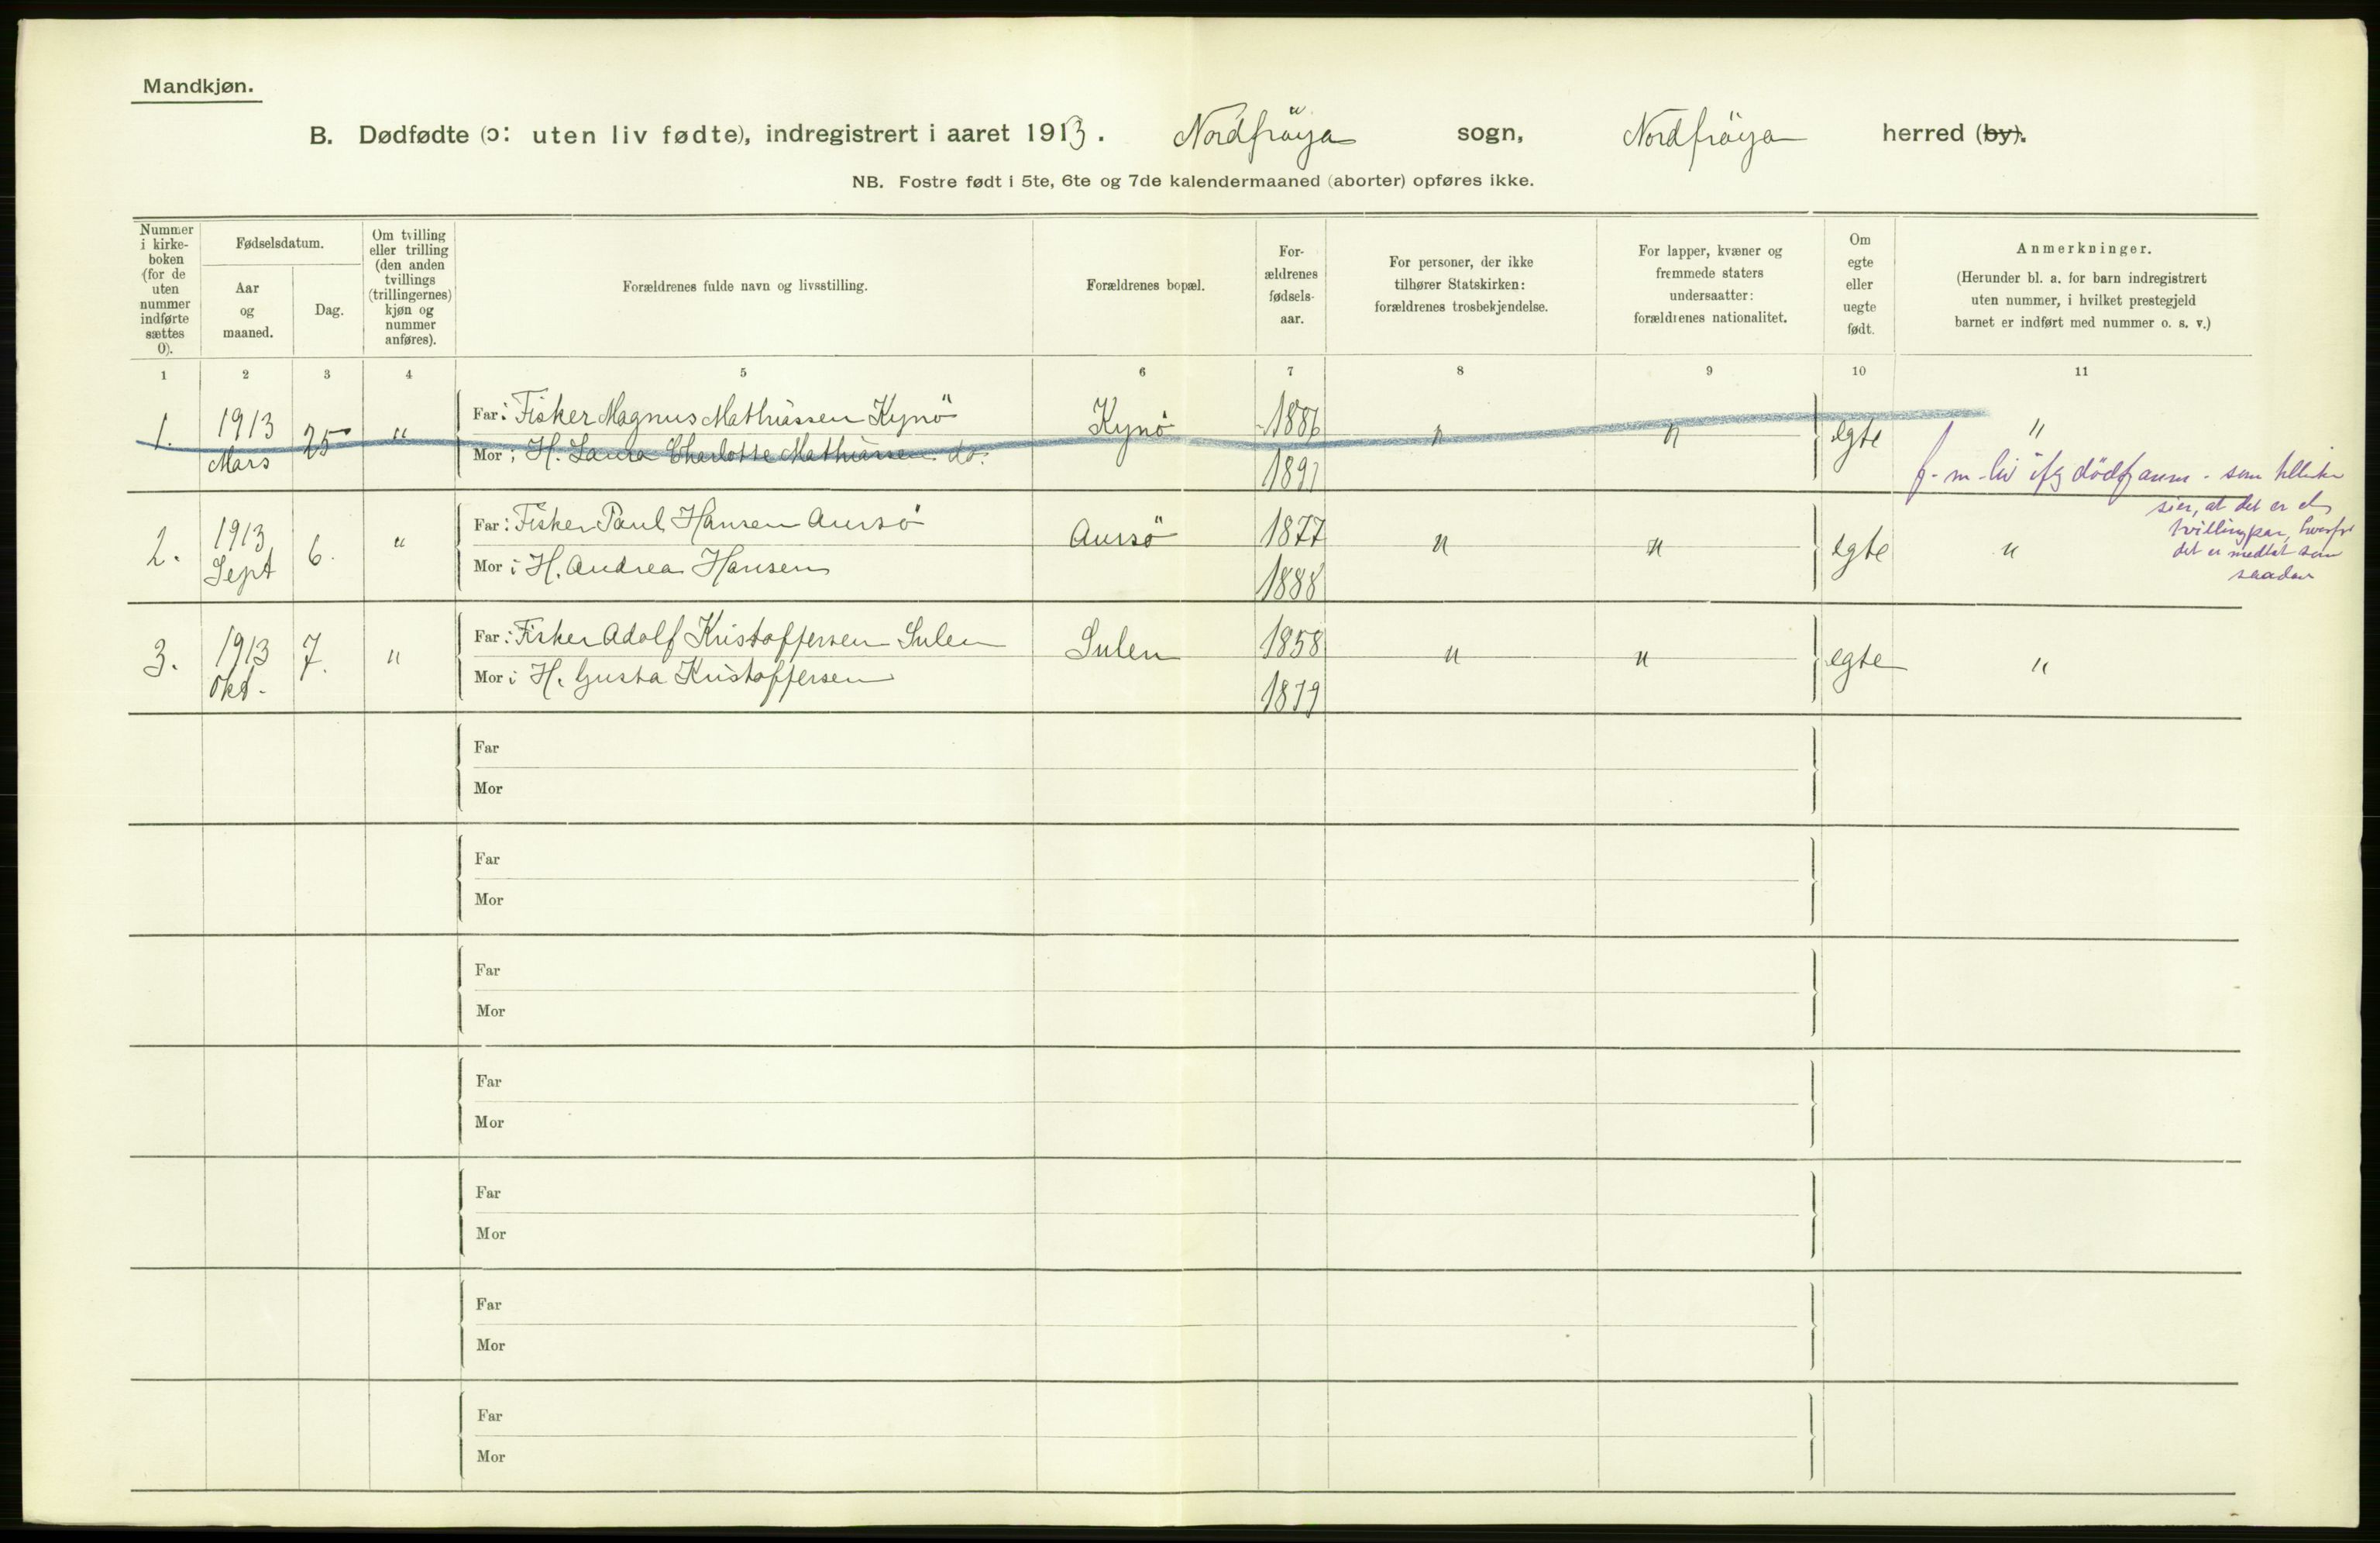 Mandkjøn.
B. Dødfødte (ɔ: uten liv fødte), indregistrert i aaret 1913. Nordfröya sogn, Nordfröya herred (by).
NB. Fostre født i 5te, 6te og 7de kalendermaaned (aborter) opføres ikke.
Nummer i kirke-boken (for de uten nummer indførte sættes 0).
Fødselsdatum.
Aar og maaned.
Dag.
Om tvilling eller trilling (den anden tvillings (trillingernes) kjøn og nummer anføres).
Forældrenes fulde navn og livsstilling.
Forældrenes bopæl.
For-ældrenes fødsels-aar.
For personer, der ikke tilhører Statskirken: forældrenes trosbekjendelse.
For lapper, kvæner og fremmede staters undersaatter: forældrenes nationalitet.
Om egte eller uegte født.
Anmerkninger.
(Herunder bl. a. for barn indregistrert uten nummer, i hvilket prestegjeld barnet er indført med nummer o. s. v.)
1 2 3 4 5 6 7 8 9 10 11
1. 1913 Mars 25 " Far: Fisker Magnus Mathiassen Kynö Kynö 1886 " " egte "
Mor: H. Laura Charlotte Mathiassen do. 1891
f. m. liv ifg dödfanm. - som
sier, at det er et
tvillingpar, hvorfor
det er medtat som
saadan
2. 1913 Sept 6. " Far: Fisker Paul Hansen Aursö Aursö 1877 " " egte "
Mor: H. Andrea Hansen 1888
3. 1913 Okt. 7. " Far: Fisker Adolf Kristoffersen Sulen Sulen 1858 " " egte "
Mor: H. Gusta Kristoffersen 1879
Far
Mor
Far
Mor
Far
Mor
Far
Mor
Far
Mor
Far
Mor
Far
Mor